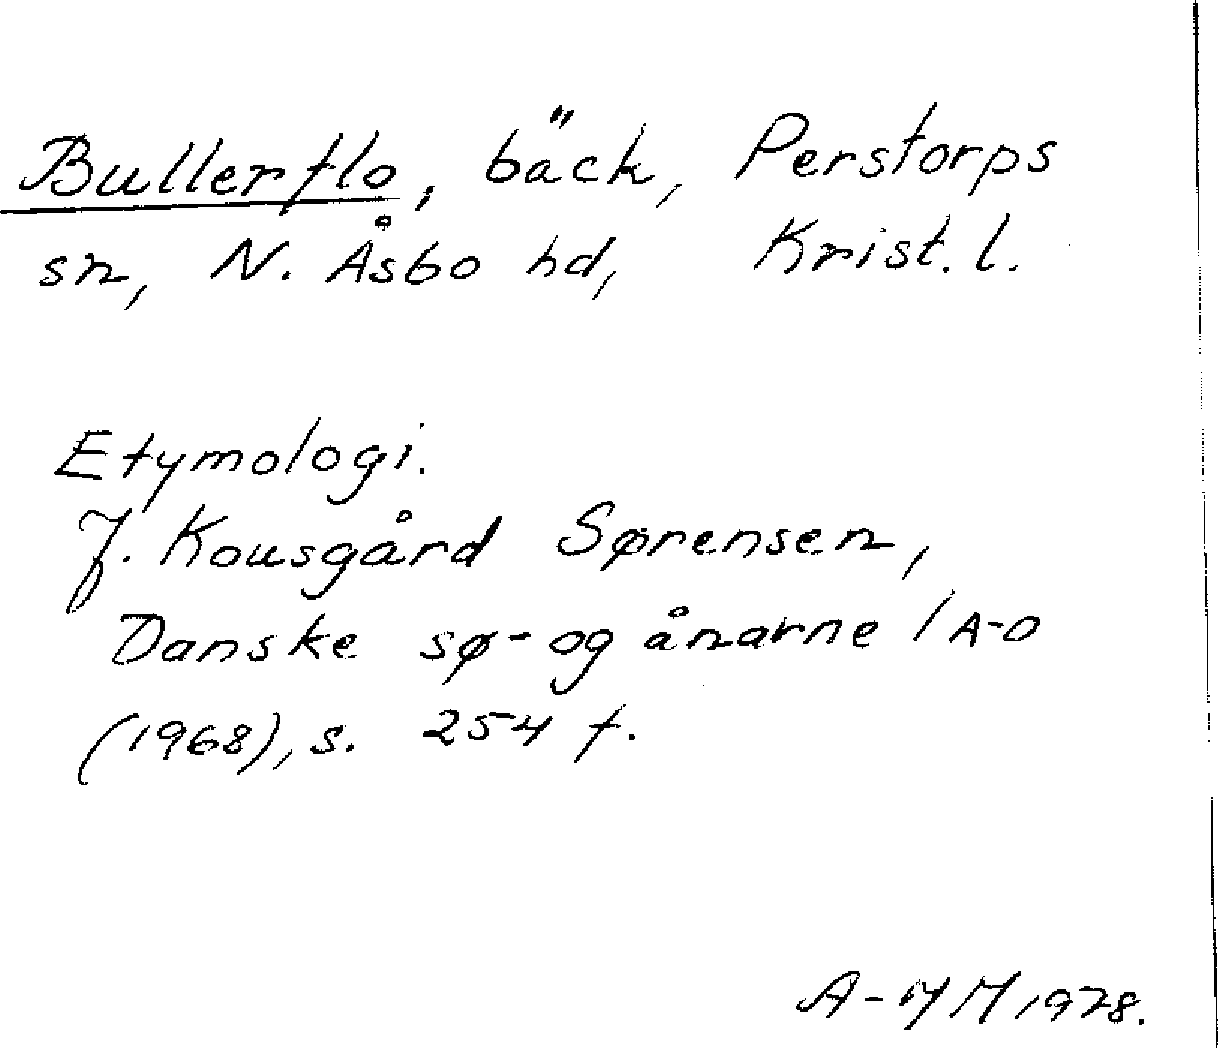 Bullerflo, bäck, Perstorps
sn, N. Åsbo hd, Krist. l.
Etymologi.
J. Kousgård Sørensen,
Danske sø- og ånavne 1 A-D
(1968), s. 254 f.
A-M M 1978.